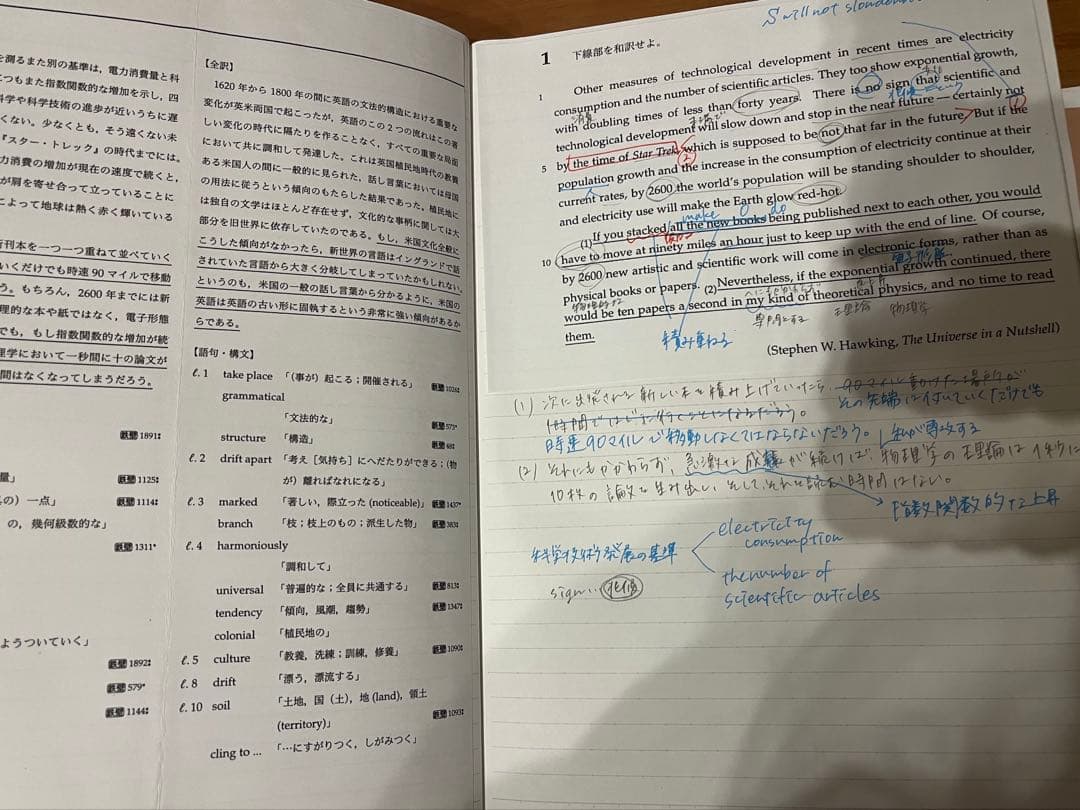 を測るまた別の基準は，電力消費量と科
つもまた指数関数的な増加を示し，四
科学や科学技術の進歩が近いうちに遅
くない。少なくとも，そう遠くない未
『スター・トレック』の時代までには。
力消費の増加が現在の速度で続くと，
が肩を寄せ合って立っていることに
よって地球は熱く赤く輝いている
新刊本を一つ一つ重ねて並べていく
いくだけでも時速90マイルで移動
う。もちろん，2600年までには新
理的な本や紙ではなく，電子形態
でも，もし指数関数的な増加が続
理学において一秒間に十の論文が
間はなくなってしまうだろう。
鉄壁 1891‡
量」
鉄壁 1125‡
の）一点」
鉄壁 1114‡
の，幾何級数的な」
鉄壁 1311*
ようついていく」
鉄壁 1892‡
鉄壁 579*
鉄壁 1144‡
【全訳】
1620年から1800年の間に英語の文法的構造における重要な
変化が英米両国で起こったが，英語のこの2つの流れはこの著
しい変化の時代に隔たりを作ることなく，すべての重要な局面
において共に調和して発達した。これは英国植民地時代の教養
ある米国人の間に一般的に見られた，話し言葉においては母国
の用法に従うという傾向のもたらした結果であった。植民地に
は独自の文学はほとんど存在せず，文化的な事柄に関しては大
部分を旧世界に依存していたのである。もし，米国文化全般に
こうした傾向がなかったら，新世界の言語はイングランドで話
されていた言語から大きく分岐してしまっていたかもしれない。
というのも，米国の一般の話し言葉から分かるように，米国の
英語は英語の古い形に固執するという非常に強い傾向があるか
らである。
【語句・構文】
ℓ. 1 take place 「（事が）起こる；開催される」 鉄壁 1026‡
grammatical
「文法的な」 鉄壁 573*
structure 「構造」 鉄壁 68‡
ℓ. 2 drift apart 「考え［気持ち］にへだたりができる；（物
が）離ればなれになる」
ℓ. 3 marked 「著しい，際立った (noticeable)」 鉄壁 1437*
branch 「枝；枝上のもの；派生した物」 鉄壁 383‡
ℓ. 4 harmoniously
「調和して」
universal 「普遍的な；全員に共通する」 鉄壁 813‡
tendency 「傾向，風潮，趨勢」 鉄壁 1347‡
colonial 「植民地の」
ℓ. 5 culture 「教養，洗練；訓練，修養」 鉄壁 1090‡
ℓ. 8 drift 「漂う，漂流する」
ℓ. 10 soil 「土地，国（土），地 (land)，領土
(territory)」 鉄壁 1093‡
cling to ... 「…にすがりつく，しがみつく」
S will not slowdown
1 下線部を和訳せよ。
1 Other measures of technological development in recent times are electricity
consumption and the number of scientific articles. They too show exponential growth,
消費
with doubling times of less than forty years. There is no sign that scientific and
technological development will slow down and stop in the near future — certainly not
5 by the time of Star Trek, which is supposed to be not that far in the future. But if the
① ②
population growth and the increase in the consumption of electricity continue at their
current rates, by 2600 the world's population will be standing shoulder to shoulder,
and electricity use will make the Earth glow red-hot.
make O do
(1)If you stacked all the new books being published next to each other, you would
10 have to move at ninety miles an hour just to keep up with the end of line. Of course,
by 2600 new artistic and scientific work will come in electronic forms, rather than as
電子形態
physical books or papers. (2)Nevertheless, if the exponential growth continued, there
物理的な
would be ten papers a second in my kind of theoretical physics, and no time to read
専門とする 理論 物理学
them.
積み重ねる
(Stephen W. Hawking, The Universe in a Nutshell)
(1) 次に出版される新しい本を積み上げていったら，
その先端に付いていくだけでも
時速90マイルで移動しなくてはならないだろう。
私が専攻する
(2) それにもかかわらず，急激な成績が続けば，物理学の理論は1秒に
10枚の論文を生み出し，そして，それを読む時間はない。
指数関数的な上昇
科学技術発展の基準
electricity
consumption
the number of
scientific articles
sign…